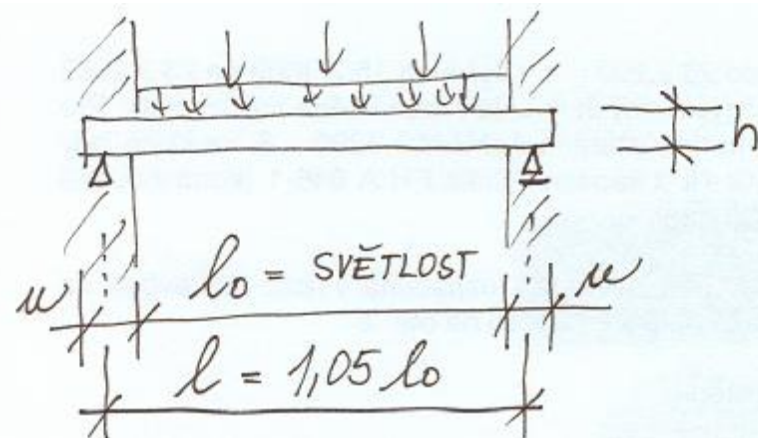 h
u l₀ = SVĚTLOST u
l = 1,05 l₀